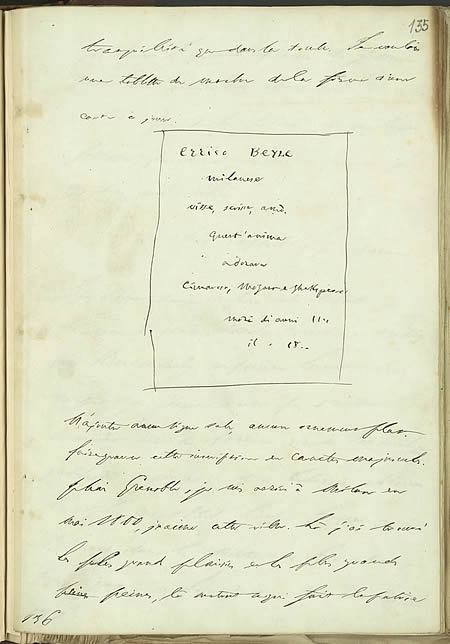 135
tranquillité que dans la foule. Je voulais
une tablette de marbre de la forme d'une
carte à jouer.
Errico Beyle
milanese
visse, scrisse, amò.
Quest'anima
adorava
Cimarosa, Mozart e Shakespeare
morì di anni
il . 18..
N'ajouter aucun signe sale, aucun ornement plat,
faire graver cette inscription en caractères majuscules.
Je hais Grenoble, je suis arrivé à Milan en
mai 1800, j'aime cette ville. Là j'ai trouvé
les plus grands plaisirs et les plus grandes
peines, là surtout ce qui fait la patrie
136